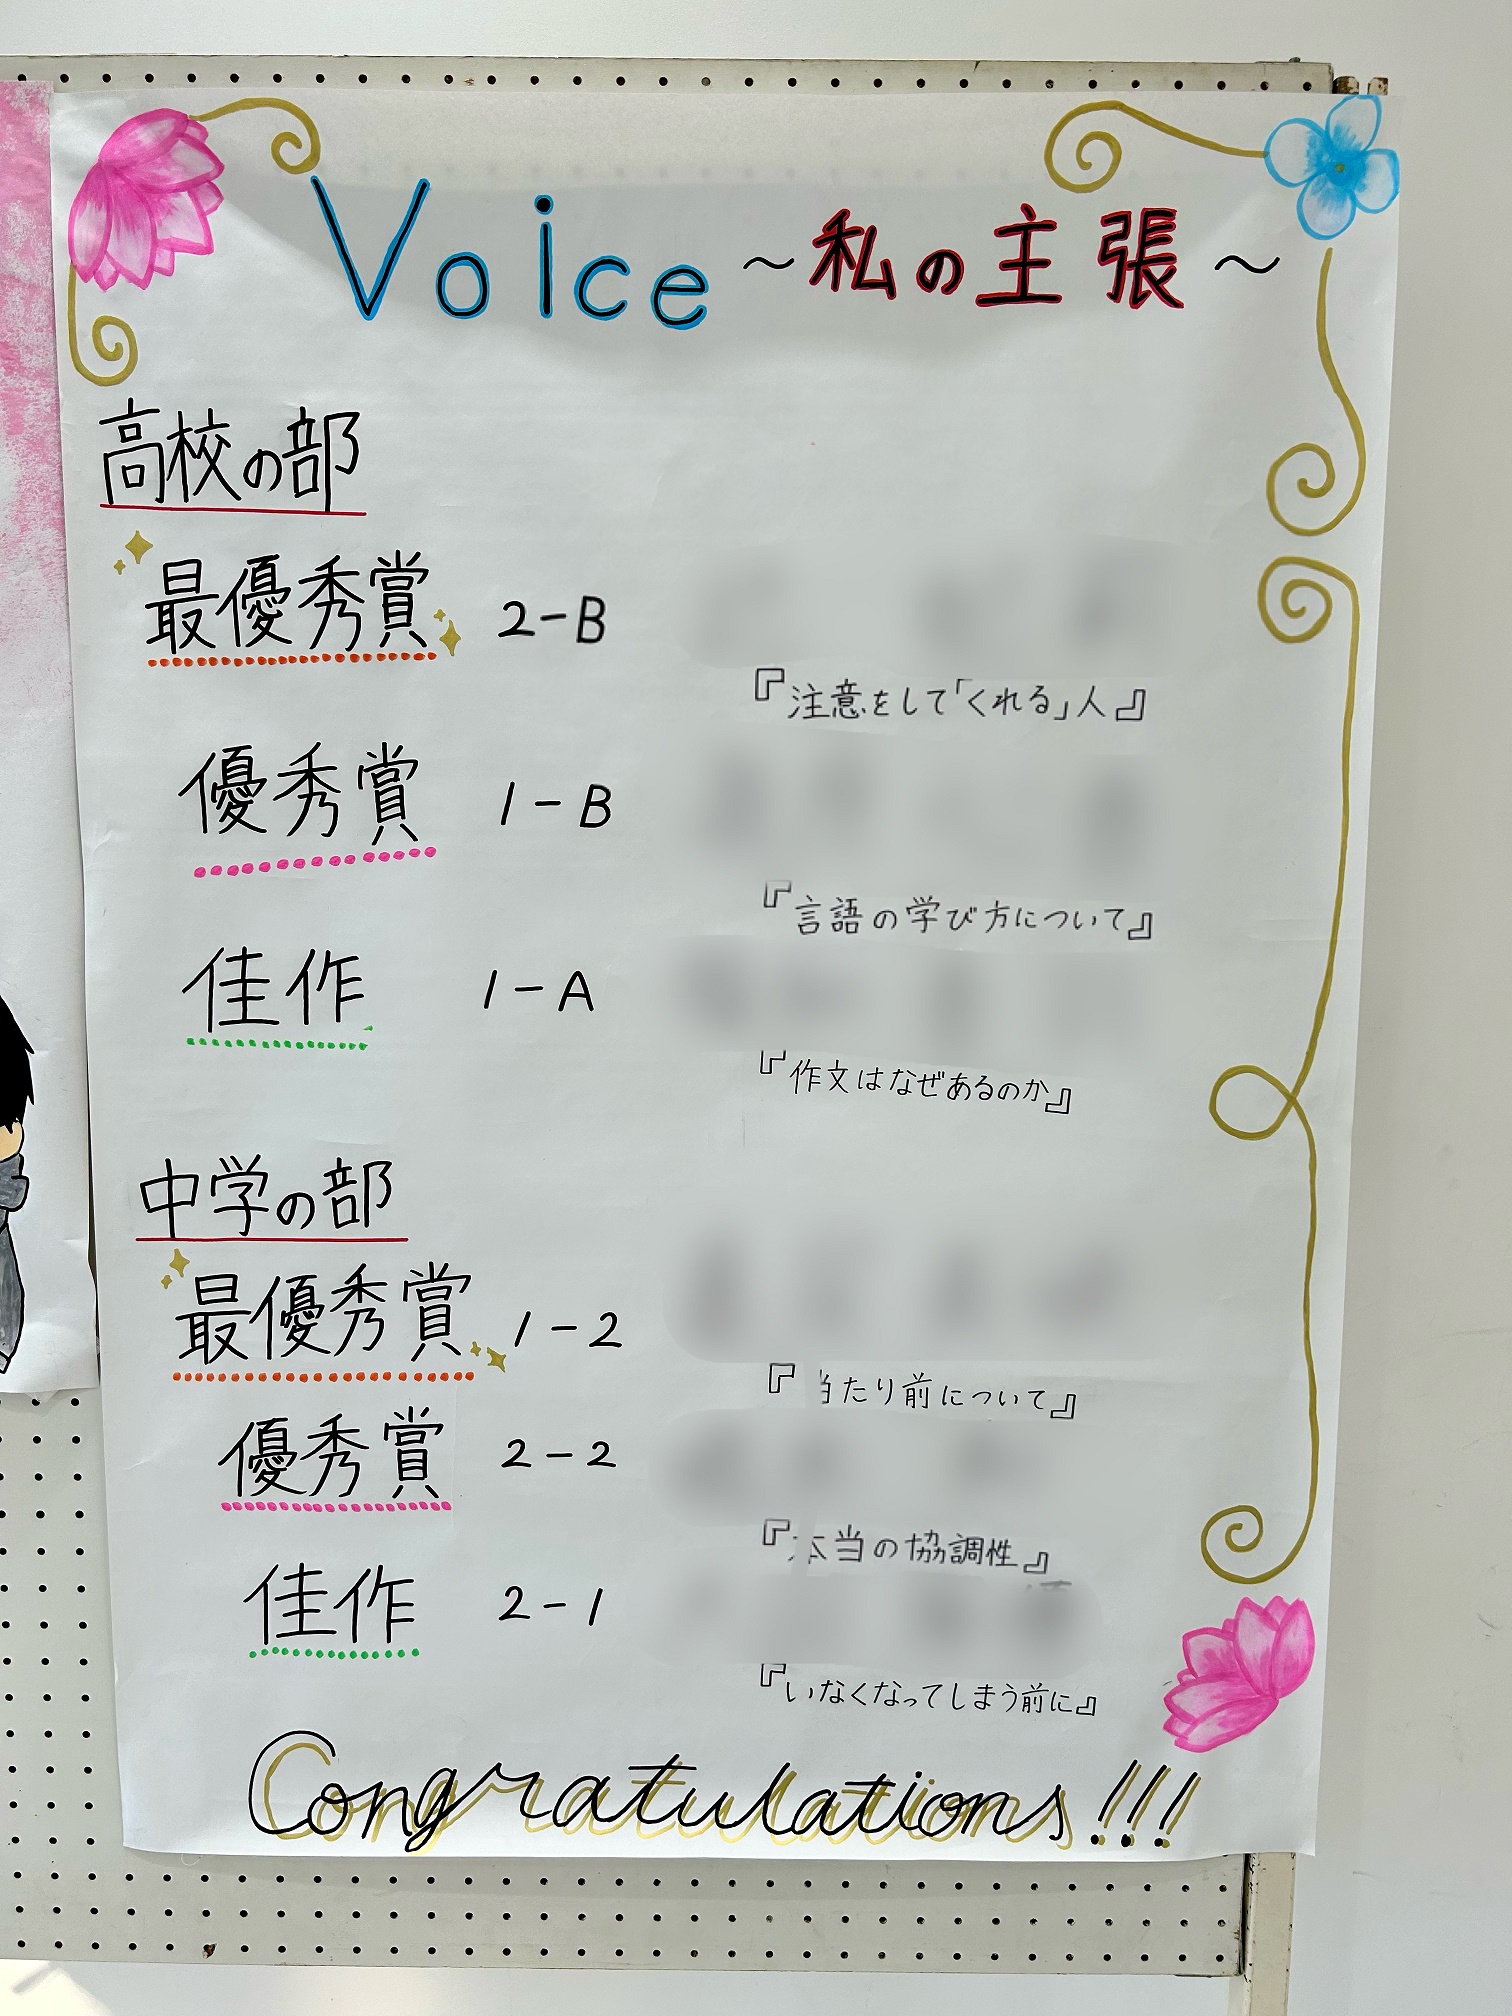 Voice ～私の主張～
高校の部
最優秀賞 2-B
『注意をして「くれる」人』
優秀賞 1-B
『言語の学び方について』
佳作 1-A
『作文はなぜあるのか』
中学の部
最優秀賞 1-2
『当たり前について』
優秀賞 2-2
『本当の協調性』
佳作 2-1
『いなくなってしまう前に』
Congratulations!!!